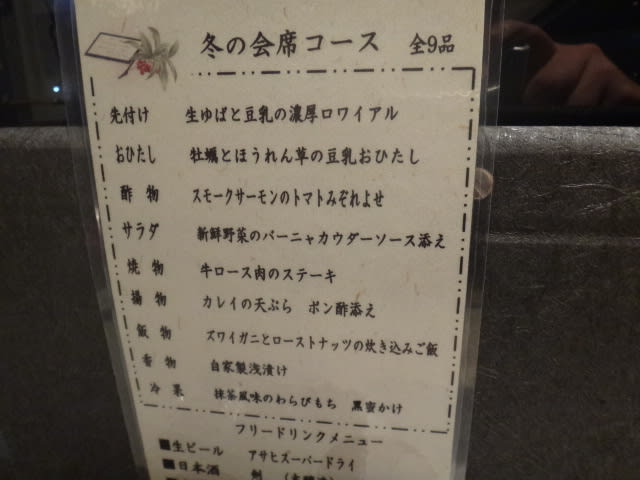 冬の会席コース 全9品
先付け 生ゆばと豆乳の濃厚ロワイアル
おひたし 牡蠣とほうれん草の豆乳おひたし
酢物 スモークサーモンのトマトみぞれよせ
サラダ 新鮮野菜のバーニャカウダーソース添え
焼物 牛ロース肉のステーキ
揚物 カレイの天ぷら ポン酢添え
飯物 ズワイガニとローストナッツの炊き込みご飯
香物 自家製浅漬け
冷菓 抹茶風味のわらびもち 黒蜜かけ
フリードリンクメニュー
■生ビール アサヒスーパードライ
■日本酒